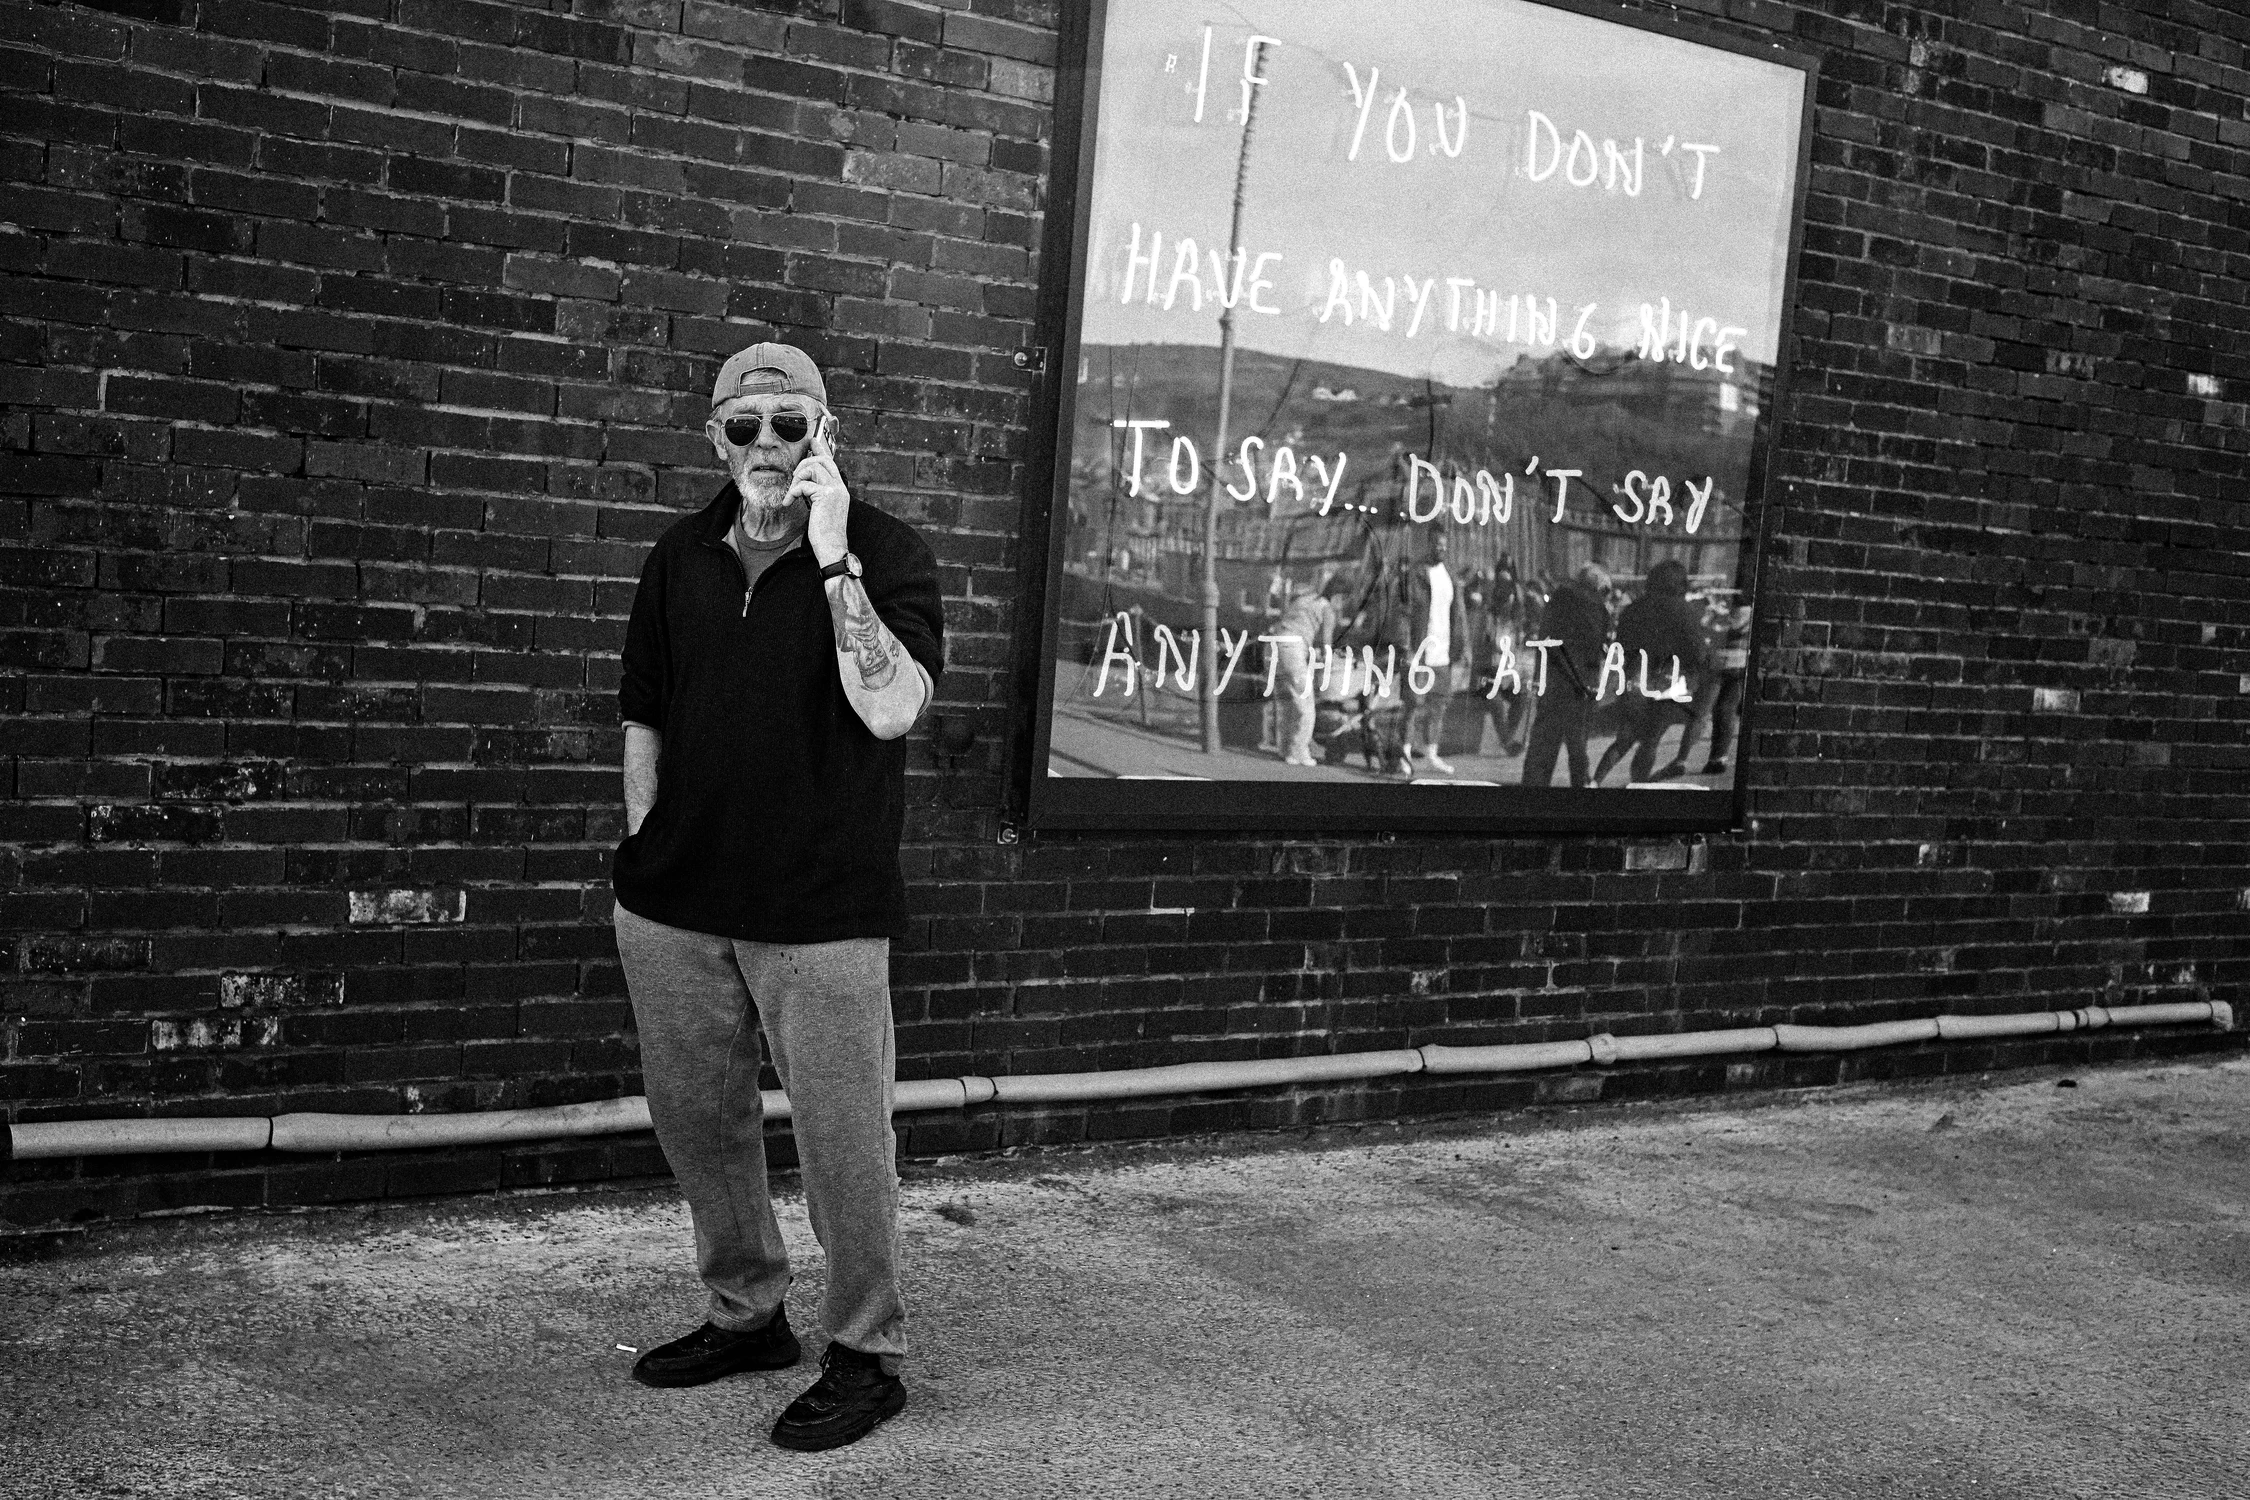 IF YOU DON'T
HAVE ANYTHING NICE
TO SAY... DON'T SAY
ANYTHING AT ALL